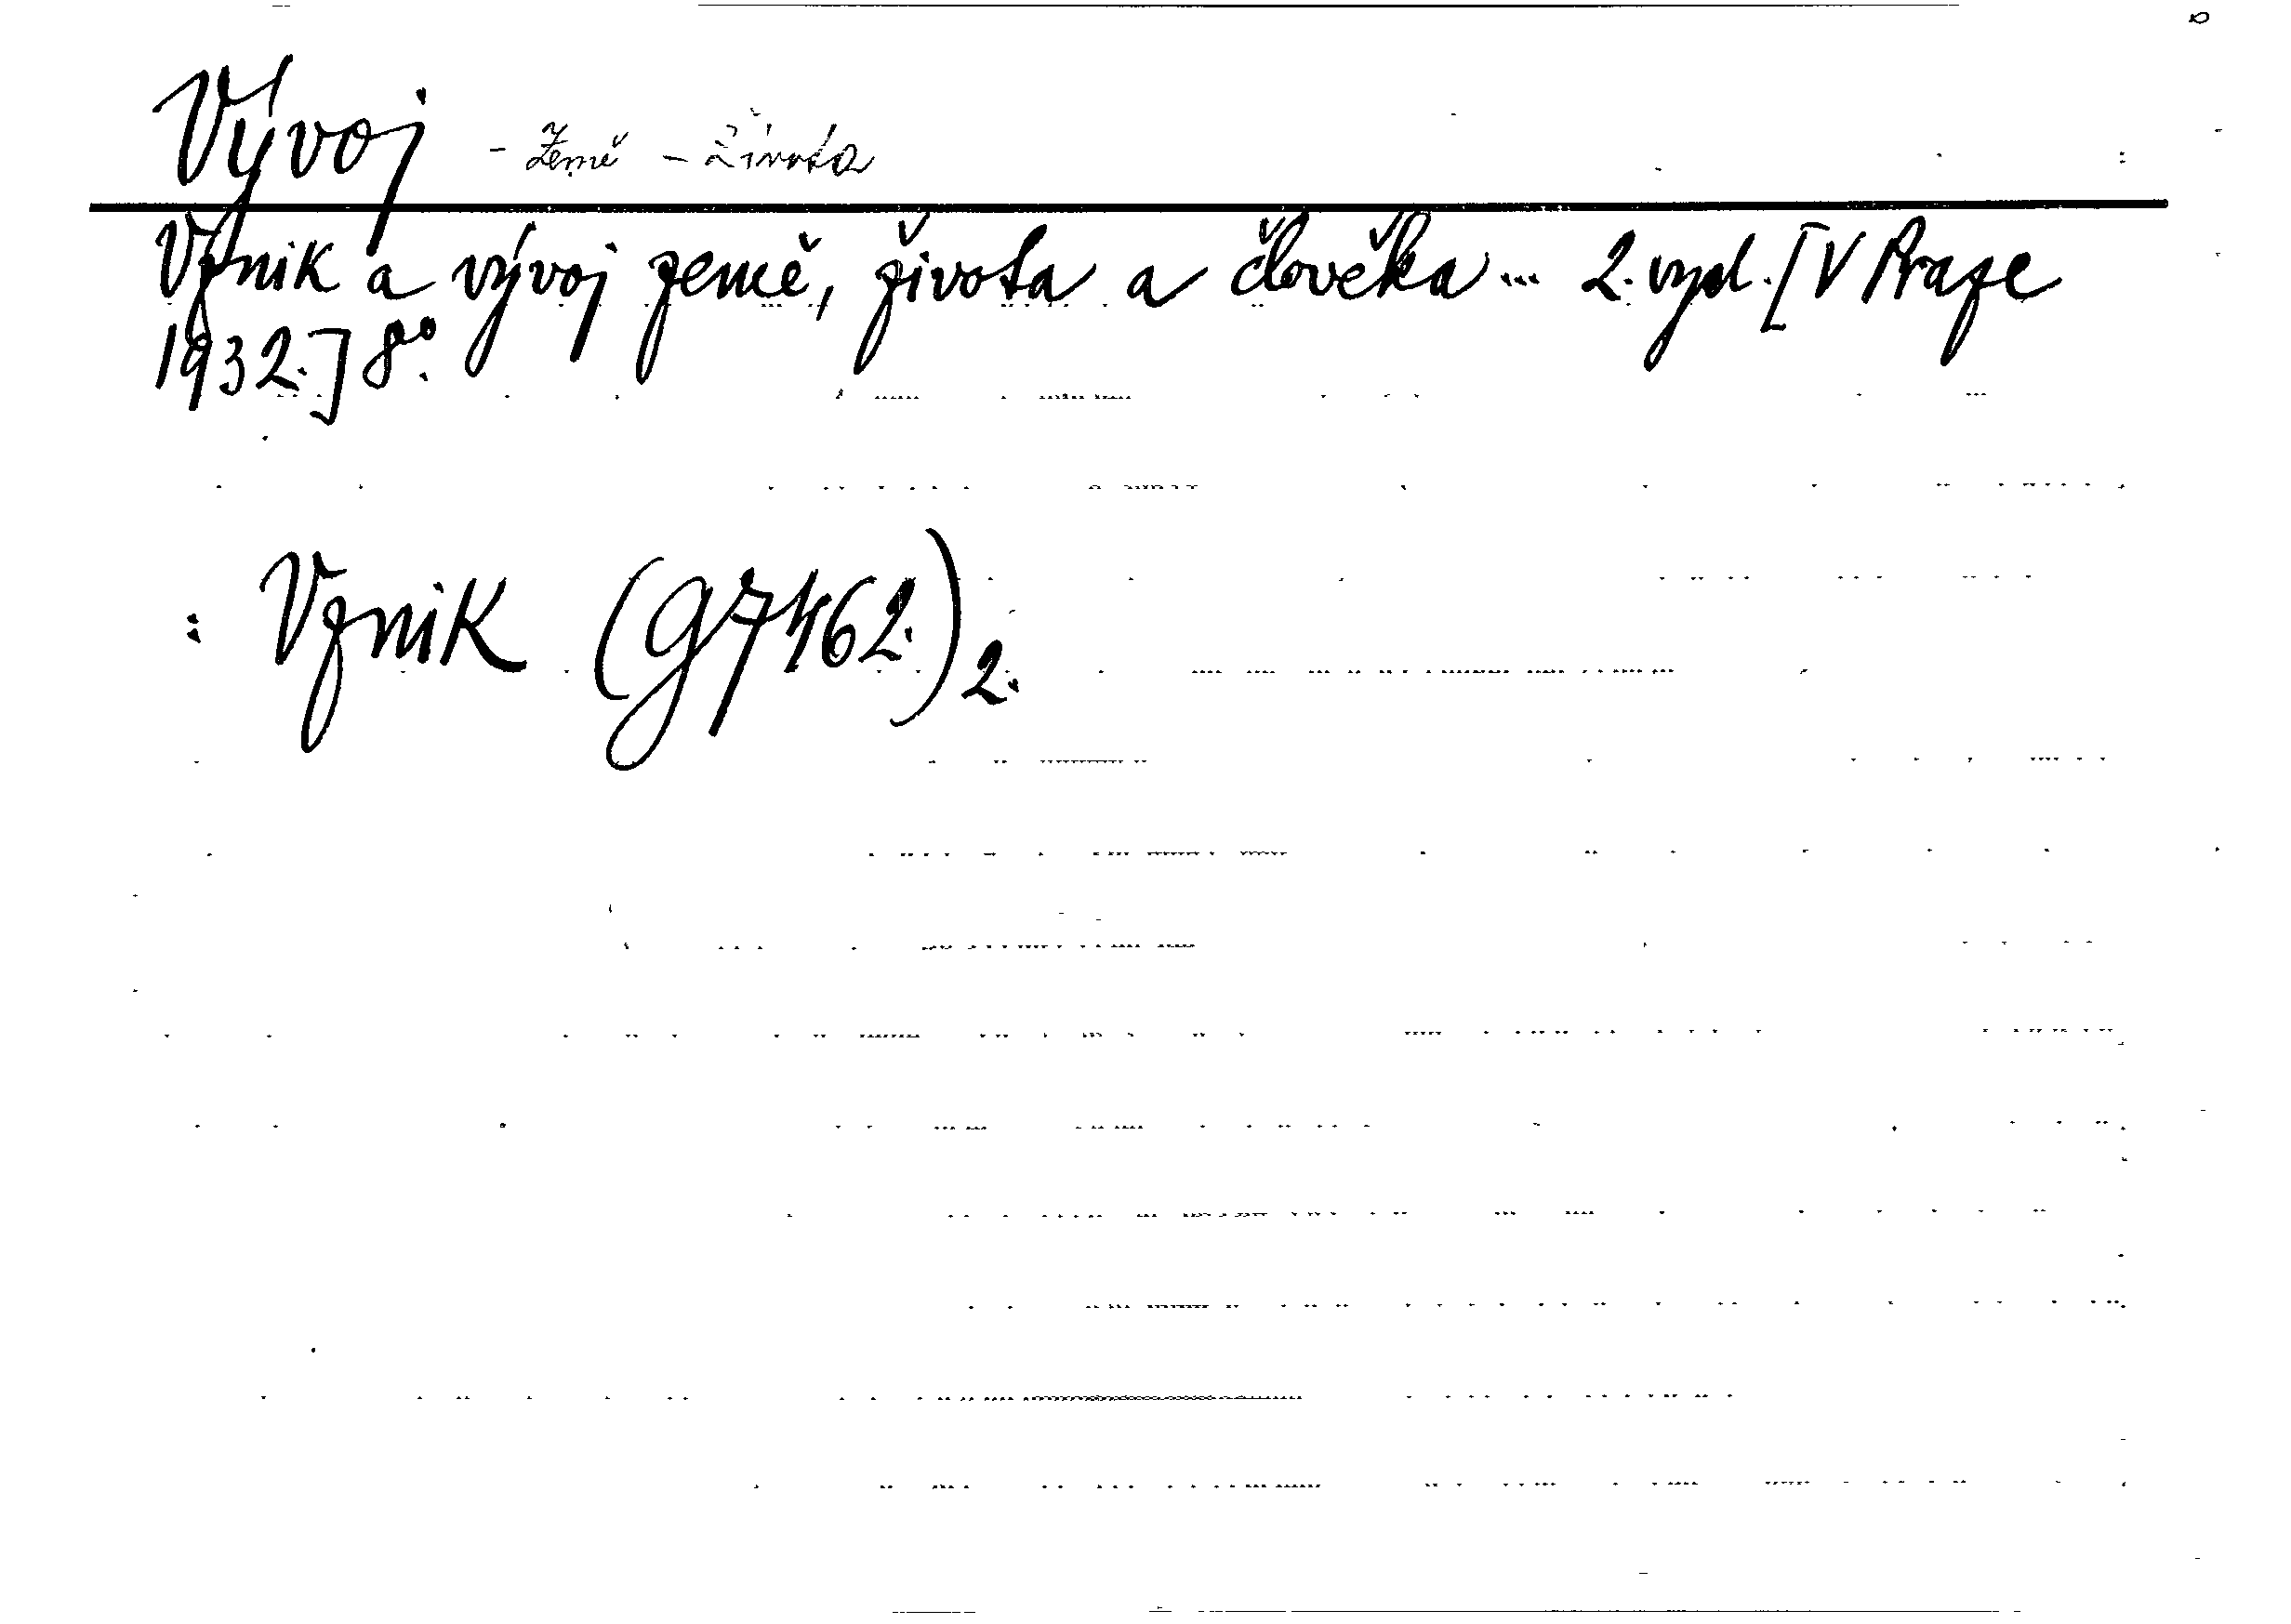 Vývoj - Země - Života
Vznik a vývoj země, života a člověka ... 2. vyd. [V Praze
1932.] 8°.
: Vznik (g7462.)2.